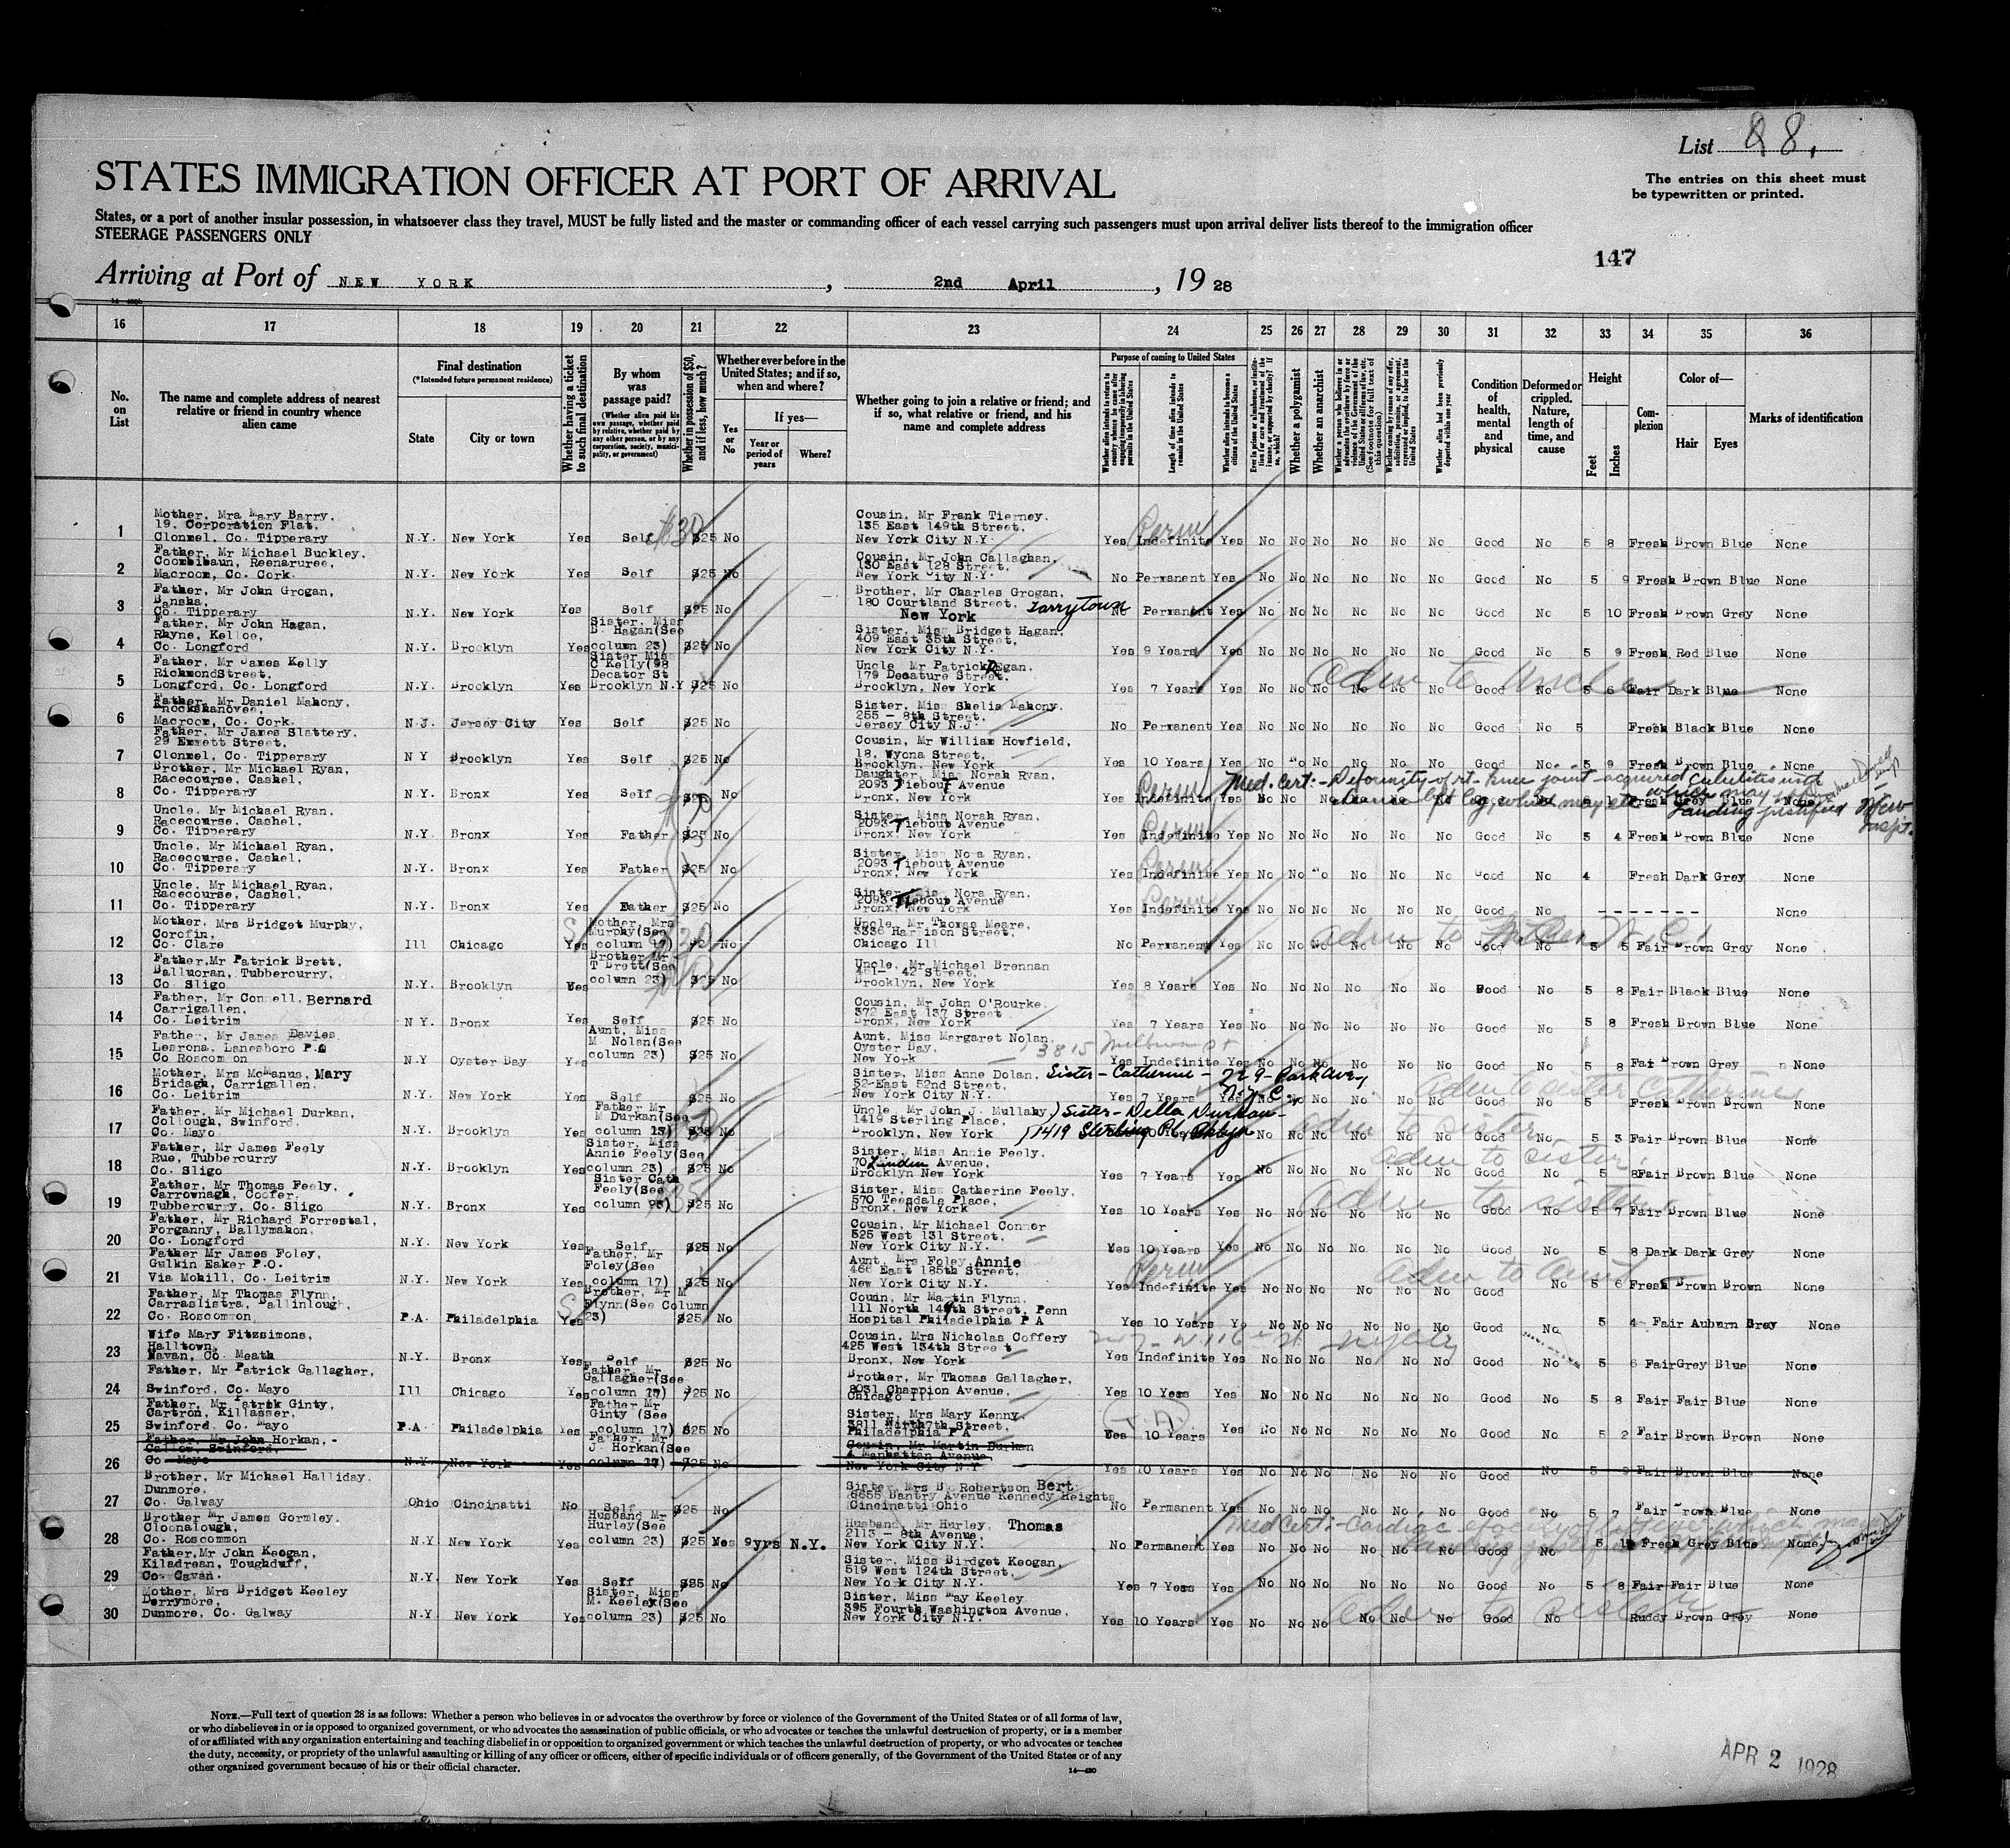 List 88.
The entries on this sheet must
be typewritten or printed.
STATES IMMIGRATION OFFICER AT PORT OF ARRIVAL
States, or a port of another insular possession, in whatsoever class they travel, MUST be fully listed and the master or commanding officer of each vessel carrying such passengers must upon arrival deliver lists thereof to the immigration officer
STEERAGE PASSENGERS ONLY
147
Arriving at Port of NEW YORK, 2nd April, 1928
16 17 18 19 20 21 22 23 24 25 26 27 28 29 30 31 32 33 34 35 36
No. on List
The name and complete address of nearest relative or friend in country whence alien came
Final destination
(*Intended future permanent residence)
State
City or town
Whether having a ticket to such final destination
By whom was passage paid?
(Whether alien paid his own passage, whether paid by relative, whether paid by any other person, or by any corporation, society, municipality, or government)
Whether in possession of $50, and if less, how much?
Whether ever before in the United States; and if so, when and where?
Yes or No
If yes—
Year or period of years
Where?
Whether going to join a relative or friend; and if so, what relative or friend, and his name and complete address
Purpose of coming to United States
Length of time alien intends to remain in the United States
Whether alien intends to become a citizen of the United States
Whether a polygamist
Whether an anarchist
Condition of health, mental and physical
Deformed or crippled. Nature, length of time, and cause
Height
Feet
Inches
Complexion
Color of—
Hair
Eyes
Marks of identification
1 Mother, Mrs Mary Barry, 19, Corporation Flat, Clonmel, Co. Tipperary N.Y. New York Yes Self $25 No Cousin, Mr Frank Tierney. 135 East 149th Street, New York City N.Y. Yes Indefinite Yes No No No No No No Good No 5 8 Fresh Brown Blue None
Perm
2 Father, Mr Michael Buckley, Coombibaun, Reenaruree, Macroom, Co. Cork. N.Y. New York Yes Self $25 No Cousin, Mr John Callaghan, 130 East 128 Street, New York City N.Y. No Permanent Yes No No No No No No Good No 5 9 Fresh Brown Blue None
3 Father, Mr John Grogan, Bansha, Co. Tipperary N.Y. New York Yes Self $25 No Brother, Mr Charles Grogan, 180 Courtland Street, Tarrytown New York No Permanent Yes No No No No No No Good No 5 10 Fresh Brown Grey None
4 Father, Mr John Hagan, Rhyne, Kelloe, Co. Longford N.Y. Brooklyn Yes Sister, Miss B. Hagan(See column 23) $25 No Sister, Miss Bridget Hagan, 409 East 35th Street, New York City N.Y. Yes 9 Years Yes No No No No No No Good No 5 9 Fresh Red Blue None
5 Father, Mr James Kelly RichmondStreet, Longford, Co. Longford N.Y. Brooklyn Yes Sister Miss C Kelly(98 Decator St Brooklyn N.Y $25 No Uncle Mr Patrick Egan. 179 Decature Street. Brooklyn, New York Yes 7 Years Yes No No No No No No Good No 5 6 Fair Dark Blue None
adm to Uncle
6 Father, Mr Daniel Mahony, Knockshanovee, Macroom, Co. Cork. N.J. Jersey City Yes Self $25 No Sister, Miss Shelia Mahony. 255 - 8th Street. Jersey City N.J. No Permanent Yes No No No No No No Good No 5 Fresh Black Blue None
7 Father, Mr James Slattery. 29 Emmett Street, Clonmel, Co. Tipperary N Y Brooklyn Yes Self $25 No Cousin, Mr William Howfield, 18, Wyona Street, Brooklyn, New York Yes 10 Years Yes No No No No No No Good No 5 9 Fresh Brown Blue None
8 Brother, Mr Michael Ryan, Racecourse, Cashel, Co. Tipperary N.Y. Bronx Yes Self Daughter, Miss Norah Ryan, 2093 Tiebout Avenue Bronx, New York Yes Indefinite Fresh Grey Blue None
Perm
Med. Cert:- Deformity of rt. knee joint-acquired
landing justified
9 Uncle, Mr Michael Ryan, Racecourse, Cashel, Co. Tipperary N.Y. Bronx Yes Father $25 No Sister Miss Norah Ryan. 2093 Tiebout Avenue Bronx, New York Yes Indefinite Yes No No No No No No Good No 5 4 Fresh Brown Blue None
Perm
10 Uncle, Mr Michael Ryan, Racecourse, Cashel, Co. Tipperary N.Y. Bronx Yes Father $25 No Sister, Miss Nora Ryan. 2093 Tiebout Avenue Bronx, New York Yes Indefinite Yes No No No No No No Good No 4 Fresh Dark Grey None
Perm
11 Uncle, Mr Michael Ryan, Racecourse, Cashel, Co. Tipperary N.Y. Bronx Yes Father $25 No Sister Miss Nora Ryan. 2093 Tiebout Avenue Bronx, New York Yes Indefinite Yes No No No No No No Good No ------- None
Perm
12 Mother, Mrs Bridget Murphy, Corofin, Co. Clare Ill Chicago Yes Mother, Mrs Murphy(See column 17) No Uncle, Mr Thomas Meare, 3336 Harrison Street, Chicago Ill No Permanent Yes No No No No No No Good No 5 5 Fair Brown Grey None
13 Father,Mr Patrick Brett, Balluoran, Tubbercurry, Co. Sligo N.Y. Brooklyn Yes Brother Mr T Brett(See column 23) $25 No Uncle, Mr Michael Brennan 461- 42 Street, Brooklyn, New York Yes 8 Years Yes No No No No No No Good No 5 8 Fair Black Blue None
14 Father, Mr Connell, Bernard Carrigallen, Co. Leitrim N Y. Bronx Yes Self $25 No Cousin, Mr John O'Rourke. 372 East 137 Street Bronx, New York Yes 7 Years Yes No No No No No No Good No 5 8 Fresh Brown Blue None
15 Father, Mr James Davies Lesrona, Lanesboro P.O Co Roscommon N.Y Oyster Bay Yes Aunt, Miss M. Nolan(See column 23) $25 No Aunt, Miss Margaret Nolan Oyster Bay, New York Yes Indefinite Yes No No No No No No Good No 5 8 Fai Brown Grey None
16 Mother, Mrs McManus, Mary Bridagh, Carrigallen, Co. Leitrim N.Y. New York Yes Self $25 No Sister, Miss Anne Dolan, 52-East 52nd Street, New York City N.Y. Yes 7 Years Yes No No No No No No Good No 5 Fresh Brown Brown None
Sister - Catherine - 229 - Park Ave, N.Y.C.
adm to sister Catherine
17 Father, Mr Michael Durkan, Collough, Swinford, Co. Mayo N.Y. Brooklyn Yes Father Mr M Durkan(See column 17) $25 No Uncle, Mr John J. Mullahy 1419 Sterling Place, Brooklyn, New York No No No No No No Good No 5 3 Fair Brown Blue None
Sister - Della Durkan - 1419 Sterling Pl. Bklyn
adm to sister
18 Father, Mr James Feely Rue, Tubbercurry Co. Sligo N.Y. Brooklyn Yes Sister, Miss Annie Feely(See column 23) $25 No Sister, Miss Annie Feely, 70 Linden Avenue, Brooklyn New York Yes 7 Years Yes No No No No No No Good No 5 8 Fair Brown Blue None
adm to sister
19 Father, Mr Thomas Feely, Carrownagh, Coofer, Tubbercurry, Co. Sligo N.Y. Bronx Yes Sister Cath Feely(See column 23) $25 No Sister, Miss Catherine Feely, 570 Teesdale Place, Bronx, New York Yes 10 Years Yes No No No No No No Good No 5 7 Fair Brown Blue None
adm to sister
20 Father, Mr Richard Forrestal, Forganny, Ballymahon, Co. Longford N.Y. New York Yes Self $25 No Cousin, Mr Michael Connor 525 West 131 Street, New York City N.Y. Yes 10 Years Yes No No No No No No Good No 5 8 Dark Dark Grey None
21 Father Mr James Foley, Gulkin Eaker P.O. Via Mohill, Co. Leitrim N.Y. New York Yes Father, Mr Foley(See column 17) $25 No Aunt, Mrs Foley Annie 466 East 185th Street, New York City N.Y. Yes Indefinite Yes No No No No No No Good No 5 6 Fresh Brown Brown None
Perm
adm to aunt
22 Father, Mr Thomas Flynn, Carraslistra, Ballinlough, Co. Roscommon P.A. Philadelphia Yes Brother, Mr M Flynn(See Column 23) $25 No Cousin, Mr Martin Flynn. 111 North 149th Street, Penn Hospital Philadelphia P A Yes 10 Years No No No No No No Good No 5 4 Fair Auburn Grey None
23 Wife Mary Fitzsimons, Halltown, Navan, Co. Meath N.Y. Bronx Yes Self $25 No Cousin, Mrs Nicholas Coffery 425 West 134th Street Bronx, New York Yes Indefinite Yes No No No No No No Good No 5 6 Fair Grey Blue None
24 Father, Mr Patrick Gallagher, Swinford, Co. Mayo Ill Chicago Yes Father, Mr Gallagher(See column 17) $25 No Brother, Mr Thomas Gallagher, 8031 Champion Avenue, Chicago Ill Yes 10 Years Yes No No No No No No Good No 5 8 Fair Fair Blue None
25 Father, Mr Patrick Ginty, Cartron, Killasser, Swinford, Co. Mayo P.A. Philadelphia Yes Father Mr Ginty (See column 17) $25 No Sister, Mrs Mary Kenny. 3811 North 7th Street, Philadelphia P A Yes 10 Years Yes No No No No No No Good No 5 2 Fair Brown Brown None
26 Father, Mr John Horkan, Callow, Swinford, Co Mayo N.Y. New York Yes Father, Mr J. Horkan(See column 17) $25 No Cousin, Mr Martin Durkan 4 Manhattan Avenue, New York City N.Y Yes 10 Years Yes No No No No No No Good No 5 9 Fair Brown Blue None
27 Brother, Mr Michael Halliday. Dunmore, Co. Galway Ohio Cincinatti No Self $25 No Sister, Mrs B. Robertson Bert 6655 Bantry Avenue Kennedy Heights Cincinatti Ohio No Permanent Yes No No No No No No Good No 5 7 Fair Brown Blue None
28 Brother Mr James Gormley. Cloonalough, Co. Roscommon N.Y New York Yes Husband Mr Hurley(See column 23) $25 Yes 9yrs N.Y. Husband, Mr Hurley, Thomas 2113 - 8th Avenue, New York City N.Y. No Permanent Yes No No No No No No Good No 5 Fresh Grey Blue None
29 Father,Mr John Keogan, Kiladrean, Toughduff, Co. Cavan. N.Y. New York Yes Self $25 No Sister, Miss Birdget Keogan, 519 West 124th Street, New York City N.Y. Yes 7 Years Yes No No No No No No Good No 5 8 Fair Fair Blue None
30 Mother, Mrs Bridget Keeley Derrymore, Dunmore, Co. Galway N.Y New York Yes Sister, Miss M. Keeley(See column 23) $25 No Sister, Miss May Keeley 395 Fourth Washington Avenue, New York City N.Y. Yes 10 Years Yes No No No No No No Good No Ruddy Brown Grey None
adm to sister
NOTE.—Full text of question 28 is as follows: Whether a person who believes in or advocates the overthrow by force or violence of the Government of the United States or of all forms of law,
or who disbelieves in or is opposed to organized government, or who advocates the assassination of public officials, or who advocates or teaches the unlawful destruction of property, or is a member
of or affiliated with any organization entertaining and teaching disbelief in or opposition to organized government or which teaches the unlawful destruction of property, or who advocates or teaches
the duty, necessity, or propriety of the unlawful assaulting or killing of any officer or officers, either of specific individuals or of officers generally, of the Government of the United States or of any
other organized government because of his or their official character.
14—430
APR 2 1928